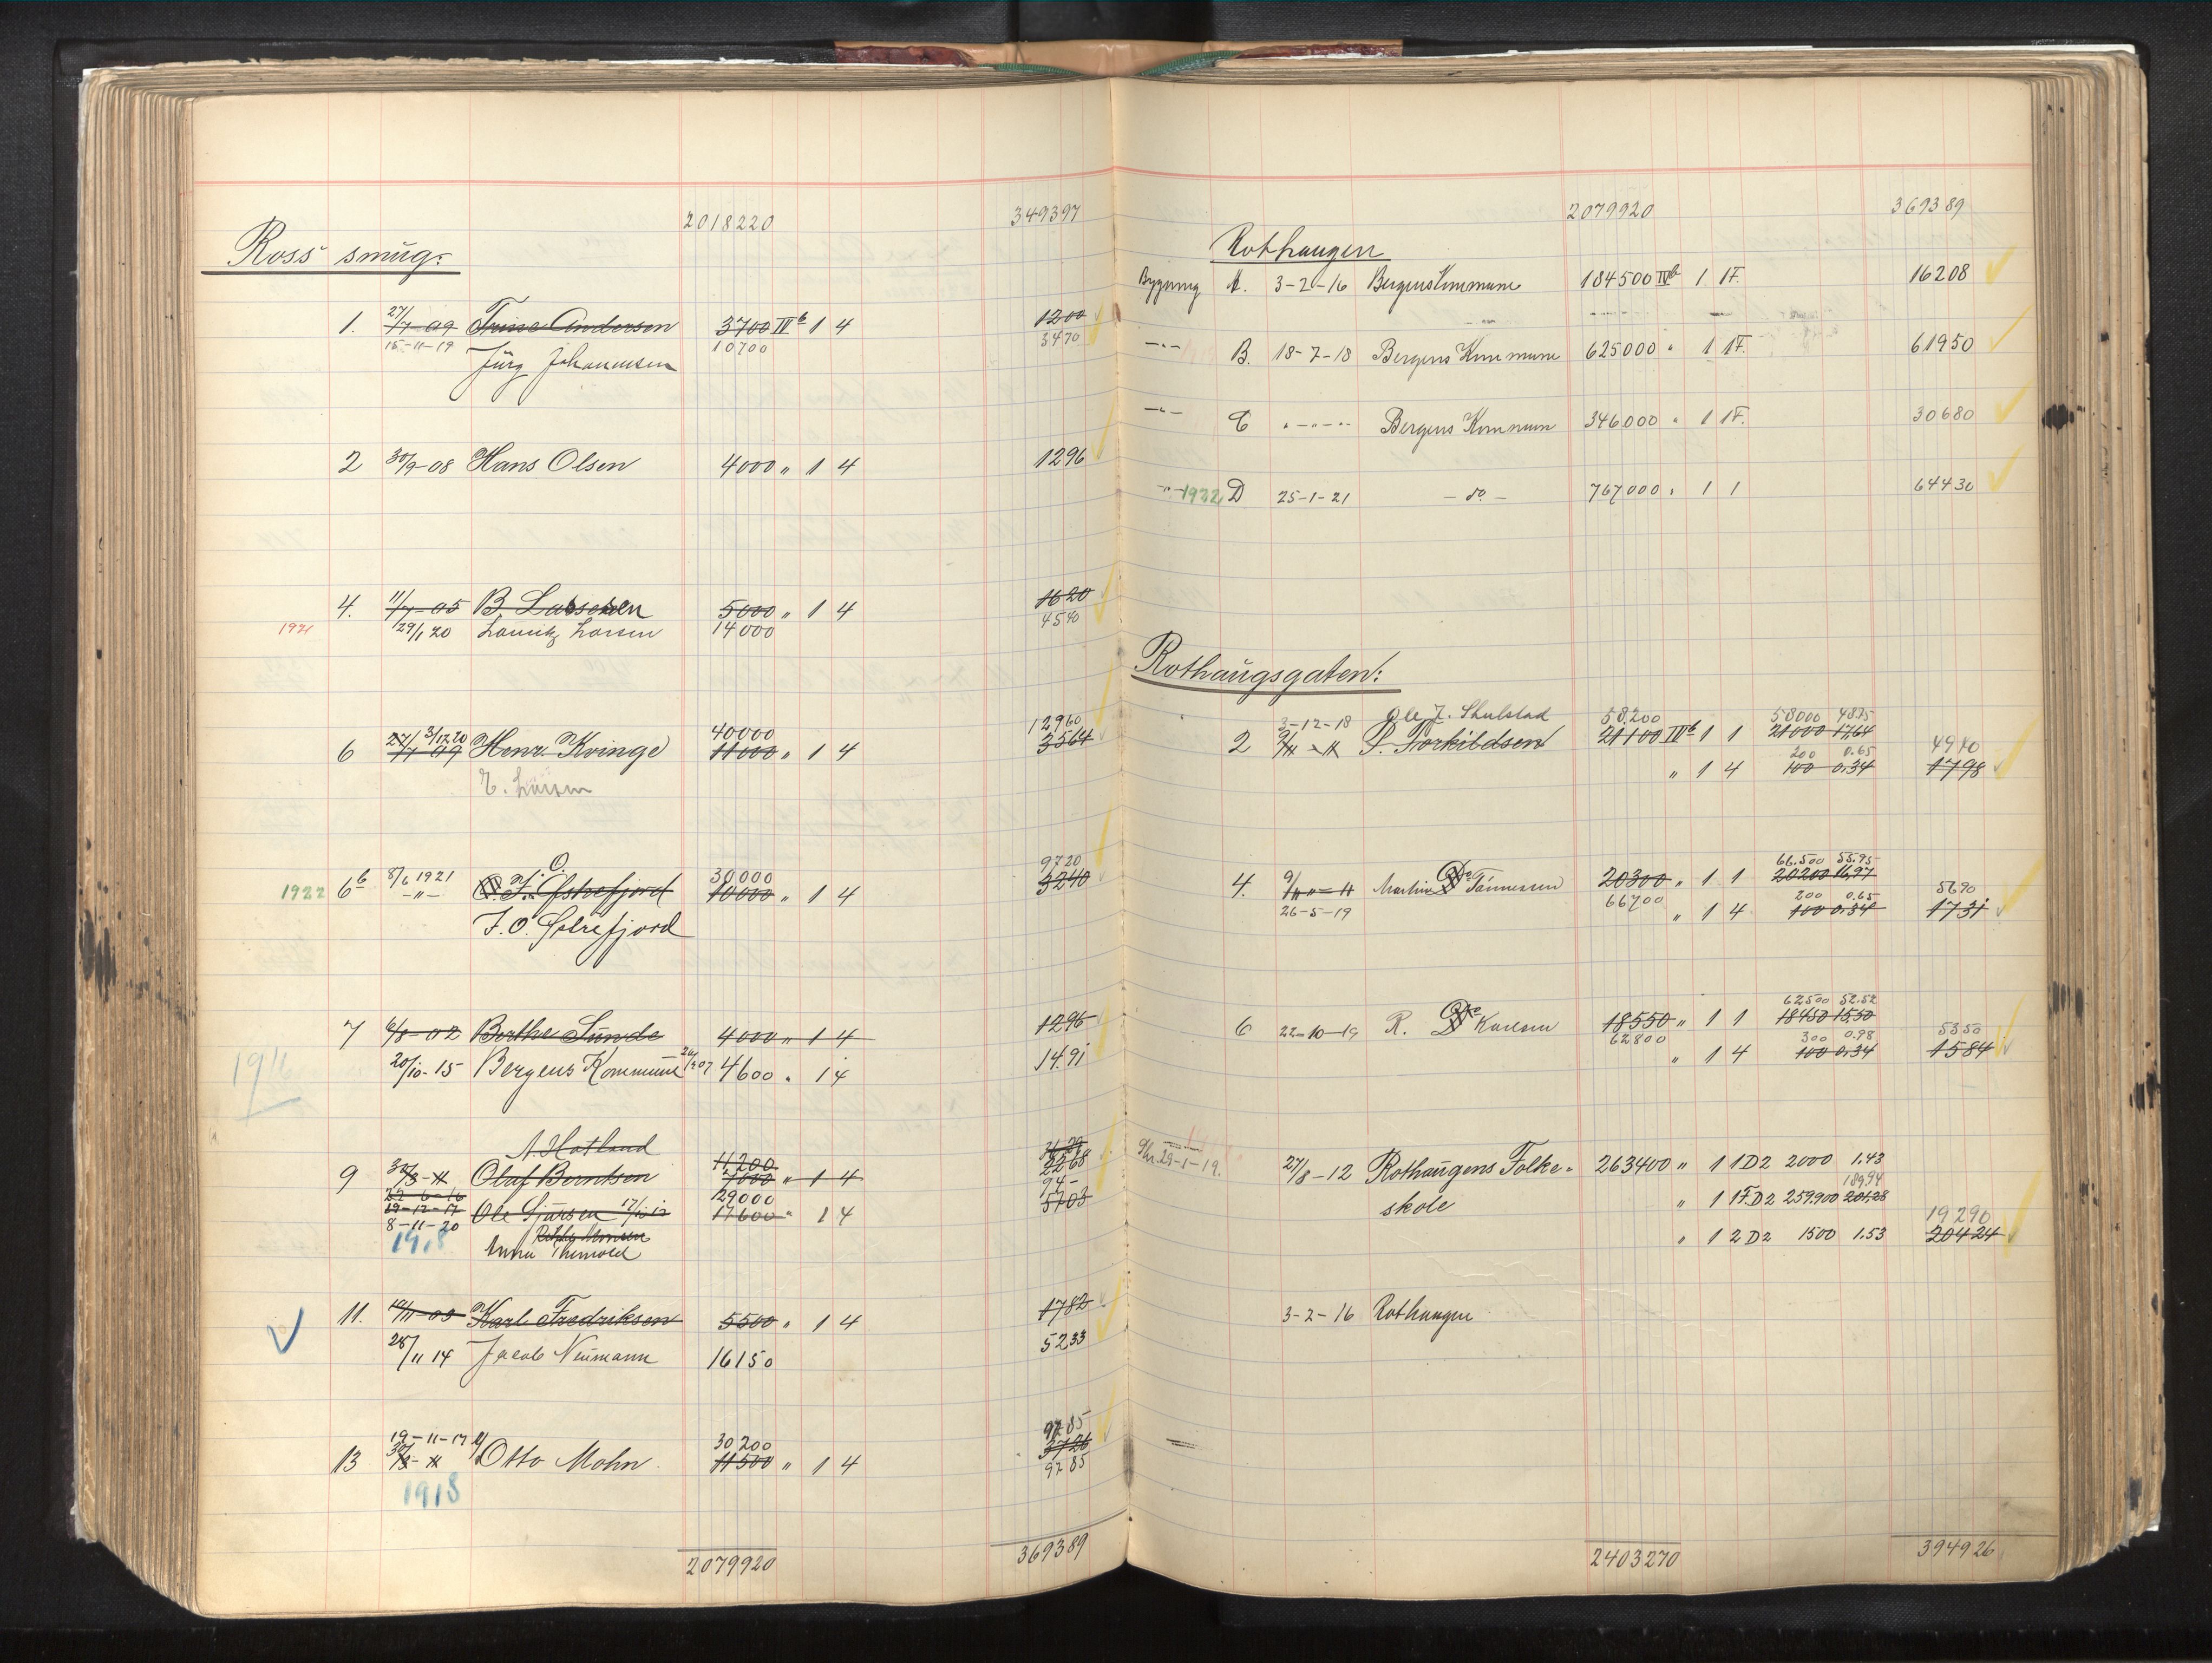 2018220 349397
Ross' smug:
1. 27/7-09 Trine Andersen 3700 IVb 1 4 1200
15-11-19 10700 3470
Jürg Johannesen
2 30/9-08 Hans Olsen 4000 " 1 4 1296
4. 11/7-05 B. Lasschen 5000 " 1 4 1620
1921 29/1 20 Lauritz Larsen 14000 4540
3/12 20 40000 12960
6 27/7-09 Henr. Kvinge 11000 " 1 4 3564
E. Larsen
J. O.
8/6 1921 30000 9720
1922 6b -"- O. J. Østrefjord 10000 " 1 4 3240
J. O. Østrefjord
7 6/8-02 Berthe Sunde 4000 " 1 4 1296
1916 20/10-15 Bergens Kommune 4600 " 1 4 14.91
A. Hatland 11200
9 30/3-11 Olaf Berntsen 7000 " 1 4 2268
22-6-16 29000 94-
19-12-17 Ole Sjursen 17/12 17 17600 " 1 4 5703
8-11-20
1918 Anna Themold
11. 19/11-03 Karl Fredriksen 5500 " 1 4 1782
28/11 14 Jacob Neumann 16150 5233
19-11-17 30200 9785
13 30/3-11 Otto Mohn 11500 " 1 4 3726
1918 9785
2079920 369389
2079920 369389
Rothaugen
Bygning A. 3-2-16 Bergens Kommune 184500 IVb 1 1F. 16208
-"- B. 18-7-18 Bergens Kommune 625000 " 1 1F. 61950
-"- C "-"-"- Bergens Kommun 346000 " 1 1F. 30680
-"- 1922 D 25-1-21 - do - 767000 " 1 1 64430
Rothaugsgaten:
3-12-18 Ole J. Skulstad 58.200 58000 48.35
2 9/11-11 P. Torkildsen 21100 IVb 1 1 21000 17,64
200 0.65 4940
" 1 4 100 0.34 1798
66.500 55.95
4. 9/11 "-11 Martin Tönnessen 20300 " 1 1 20200 16,97
26-5-19 66700 200 0.65 5690
" 1 4 100 0.34 1731
62500 52.52
6 22-10-19 R. Karlsen 18550 " 1 1 18450 15,50
62800 300 0.98 5350
" 1 4 100 0.34 1584
29-1-19. 27/8-12 Rothaugens Folke- 263400 " 1 1D2 2000 1.43
189.94
skole " 1 1F.D2 259.900 201.28
19290
" 1 2 D2 1500 1.53 20424
3-2-16 Rothaugen
2403270 394926